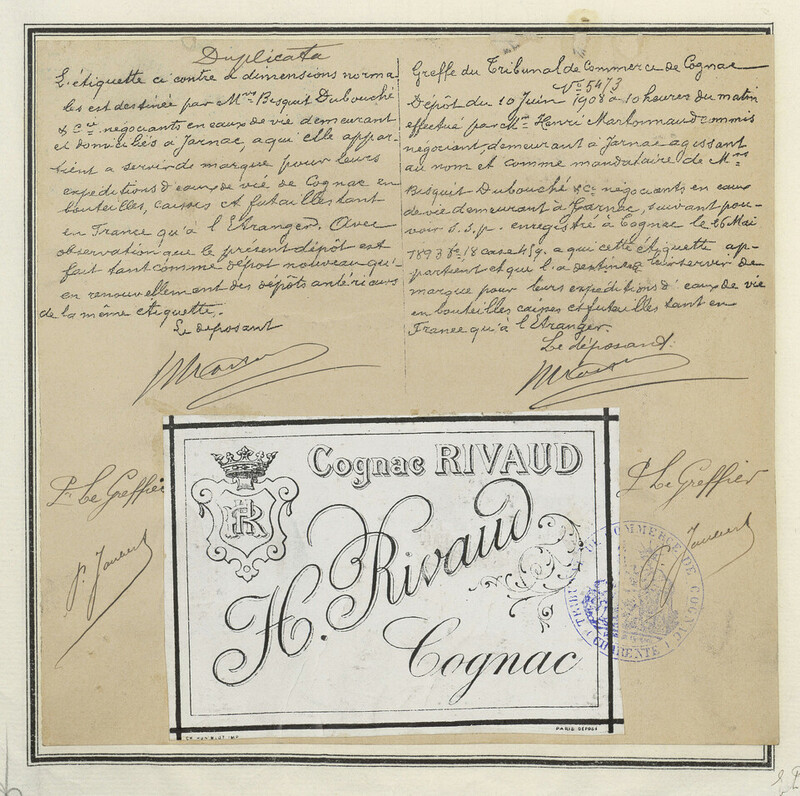 Duplicata
L'étiquette ci contre à dimensions norma-
les est destinée par Mrs Bisquit Dubouché
& Cie négociants en eaux de vie demeurant
et domiciliés à Jarnac, à qui elle appar-
tient a servir de marque pour leurs
expéditions d'eaux de vie de Cognac en
bouteilles, caisses et futailles tant
en France qu'à l'Etranger. Avec
observation que le présent dépôt est
fait tant comme dépôt nouveau qu'
en renouvellement des dépôts antérieurs
de la même étiquette.
Le déposant
Greffe du Tribunal de Commerce de Cognac
No 5473
Dépôt du 10 Juin 1908 à 10 heures du matin
effectué par Mr Henri Martonnaud commis
négociant, demeurant à Jarnac agissant
au nom et comme mandataire de Mrs
Bisquit Dubouché & Cie négociants en eaux
de vie demeurant à Jarnac, suivant pou-
voir s.s.p. enregistré à Cognac le 26 Mai
1893 fo 18 case 459. a qui cette étiquette ap-
partient et qui l'a destinée à servir de
marque pour leurs expéditions d'eaux de vie
en bouteilles caisses et futailles tant en
France qu'à l'Etranger.
Le déposant.
Pr Le Greffier
P. Le Greffier
Cognac RIVAUD
HR
H. Rivaud
Cognac
PARIS DÉPOSÉ
TRIBUNAL DE COMMERCE DE COGNAC
CHARENTE